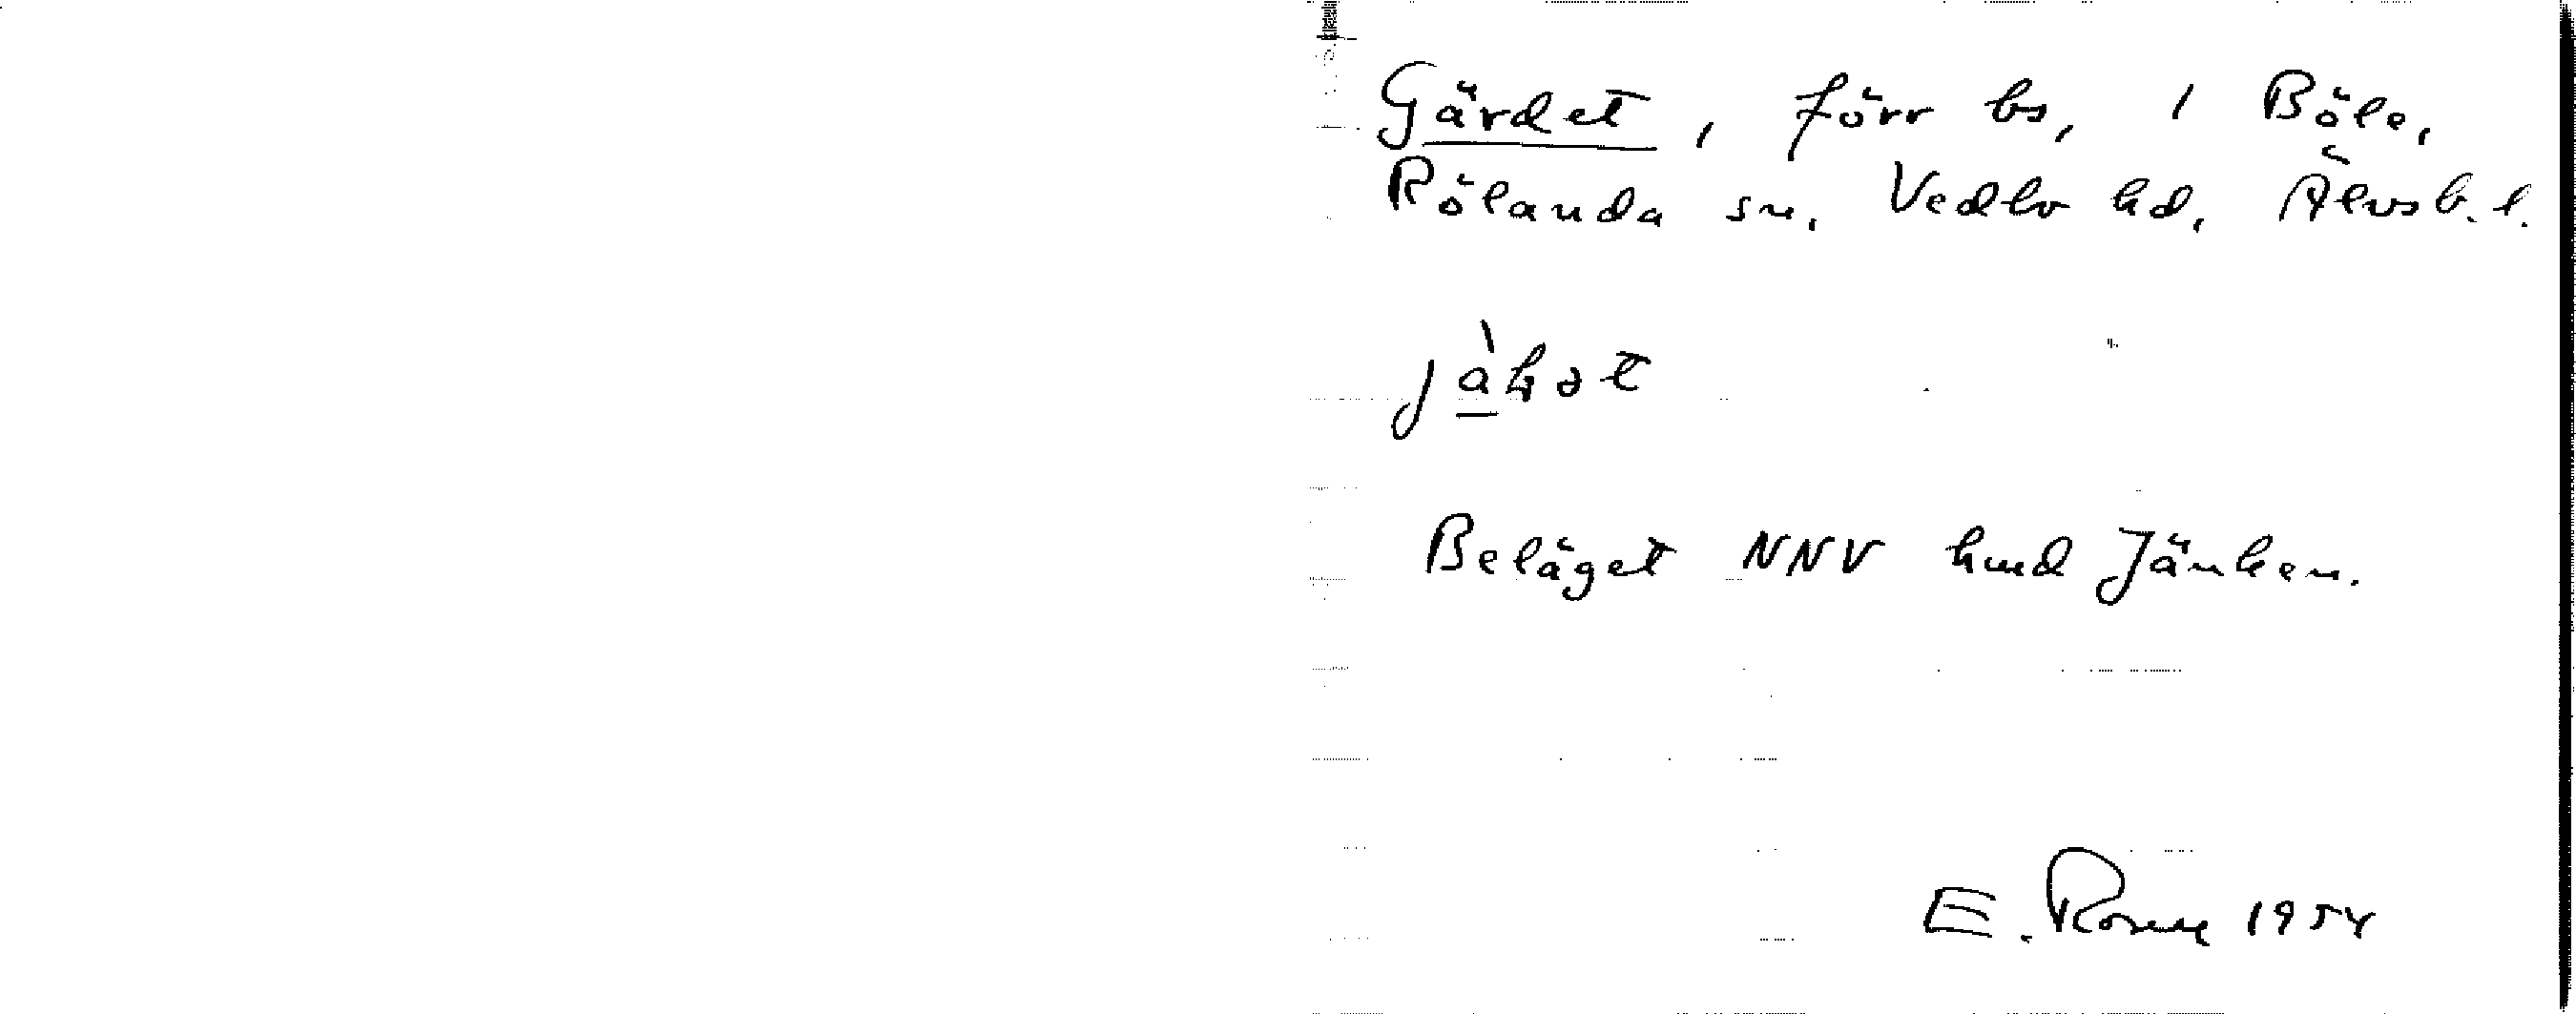 Gärdet, förr bs, i Böle,
Rölanda sn. Vedbo hd, Älvsb. l.
Beläget NNV hmd Jänken.
E. 1954